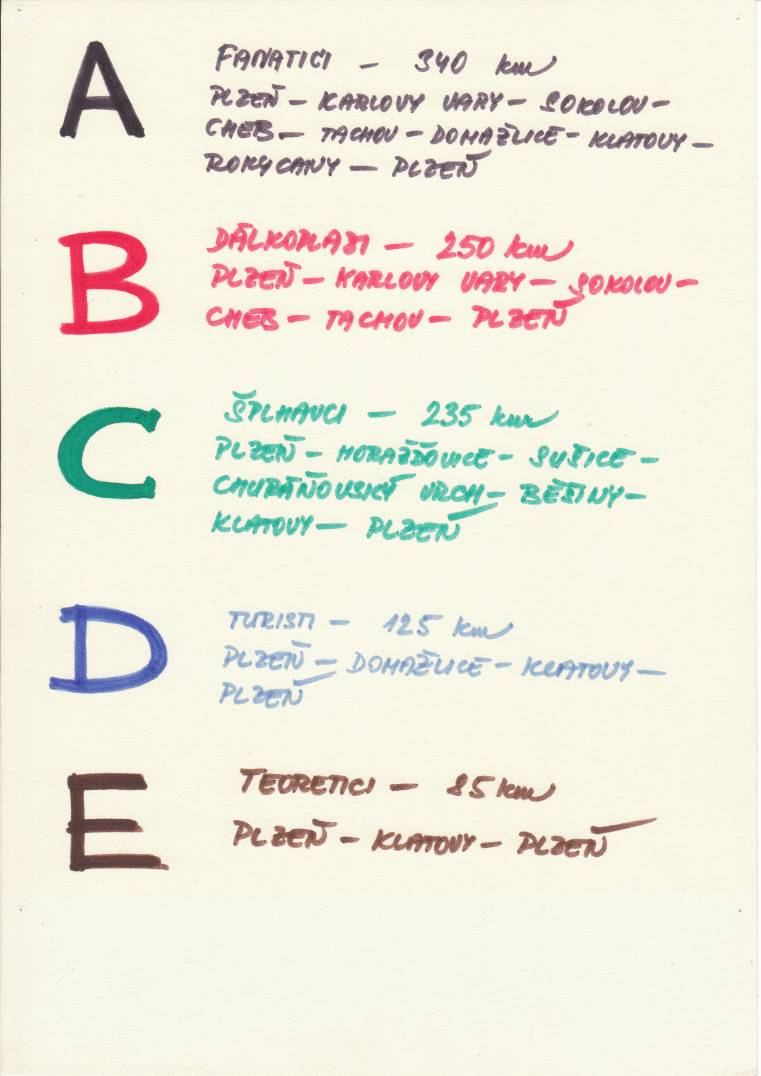 A
FANATICI – 340 km
PLZEŇ – KARLOVY VARY – SOKOLOV –
CHEB – TACHOV – DOMAŽLICE – KLATOVY –
ROKYCANY – PLZEŇ
B
DÁLKOPLAZI – 250 km
PLZEŇ – KARLOVY VARY – SOKOLOV –
CHEB – TACHOV – PLZEŇ
C
ŠPLHAVCI – 235 km
PLZEŇ – HORAŽĎOVICE – SUŠICE –
CHURÁŇOVSKÝ VRCH – BĚŠINY –
KLATOVY – PLZEŇ
D
TURISTI – 125 km
PLZEŇ – DOMAŽLICE – KLATOVY –
PLZEŇ
E
TEORETICI – 85 km
PLZEŇ – KLATOVY – PLZEŇ